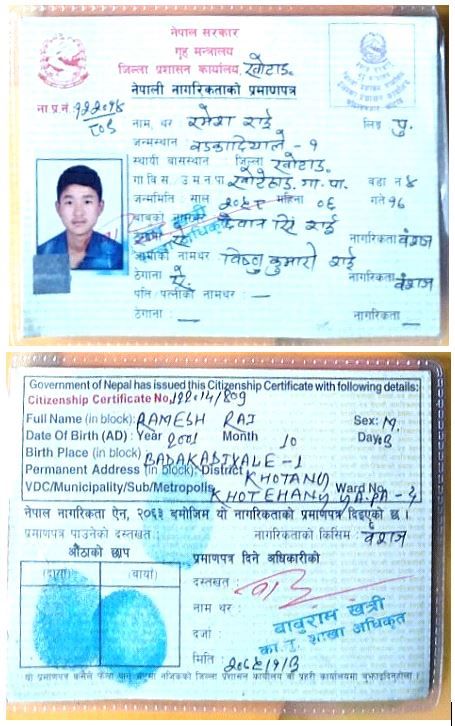 नेपाल सरकार
गृह मन्त्रालय
जिल्ला प्रशासन कार्यालय, खोटाङ
नेपाली नागरिकताको प्रमाणपत्र
ना.प्र.नं.
नाम, थर रमेश राई लिङ्ग पु.
जन्मस्थान वडकादियाले - १
स्थायी बासस्थान : जिल्ला खोटाङ
गा वि स. उ म न पा खोटेहाङ. गा. पा. वडा नं ४
जन्ममिति : साल महिना ०६ गते १६
बाबुको नामथर देवान सिं राई नागरिकता वंशज
आमाको नामथर विष्णु कुमारी राई
ठेगाना ऐ. नागरिकता वंशज
पति/पत्नीको नामथर : —
ठेगाना : — नागरिकता —
Government of Nepal has issued this Citizenship Certificate with following details:
Citizenship Certificate No.
Full Name (in block): RAMESH RAI Sex: M.
Date Of Birth (AD) : Year 2001 Month 10 Day
Birth Place (in block) BADAKADIYALE - 1
Permanent Address (in block): District KHOTANG
VDC/Municipality/Sub/Metropolis KHOTEHANG GA.PA - Ward No.
नेपाल नागरिकता ऐन, २०६३ बमोजिम यो नागरिकताको प्रमाणपत्र दिइएको छ ।
प्रमाणपत्र पाउनेको दस्तखत : नागरिकताको किसिम : वंशज
औंठाको छाप प्रमाणपत्र दिने अधिकारीको
(दायाँ) (बायाँ) दस्तखत :
नाम थर : बाबुराम खत्री
दर्जा : शाखा अधिकृत
मिति :